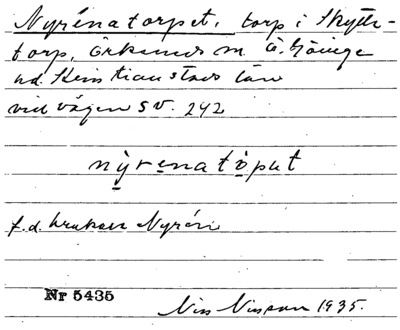 Nyrénatorpet, torp i Skytte-
torp, Örkeneds sn Ö. Göinge
hd. Kristianstads län
vid vägen SV. 242
nỳrenatòput
f.d. brukare Nyrén
Nr 5435
Nils Nilsson 1935.